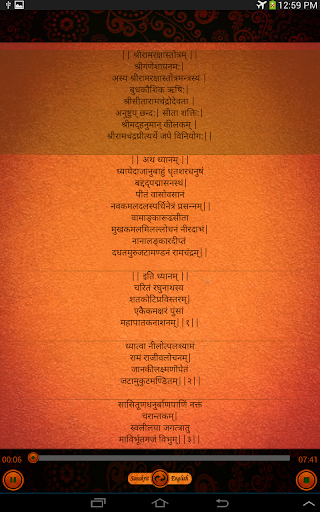 12:59 PM
|| श्रीरामरक्षास्तोत्रम् ||
श्रीगणेशायनम:|
अस्य श्रीरामरक्षास्तोत्रमन्त्रस्य |
बुधकौशिक ऋषि:|
श्रीसीतारामचंद्रोदेवता |
अनुष्टुप् छन्द:| सीता शक्ति:|
श्रीमद्हनुमान् कीलकम् |
श्रीरामचंद्रप्रीत्यर्थे जपे विनियोग:||
|| अथ ध्यानम् ||
ध्यायेदाजानुबाहुं धृतशरधनुषं
बद्दद्पद्मासनस्थं|
पीतं वासोवसानं
नवकमलदलस्पर्धिनेत्रं प्रसन्नम्|
वामाङ्कारूढसीता
मुखकमलमिलल्लोचनं नीरदाभं|
नानालङ्कारदीप्तं
दधतमुरुजटामण्डनं रामचंद्रम्||
|| इति ध्यानम् ||
चरितं रघुनाथस्य
शतकोटिप्रविस्तरम्|
एकैकमक्षरं पुंसां
महापातकनाशनम्||१||
ध्यात्वा नीलोत्पलश्यामं
रामं राजीवलोचनम्|
जानकीलक्ष्मणोपेतं
जटामुकुटमण्डितम्||२||
सासितूणधनुर्बाणपाणिं नक्तं
चरान्तकम्|
स्वलीलया जगत्त्रातु
माविर्भूतमजं विभुम्||३||
00:06 07:41
Sanskrit English